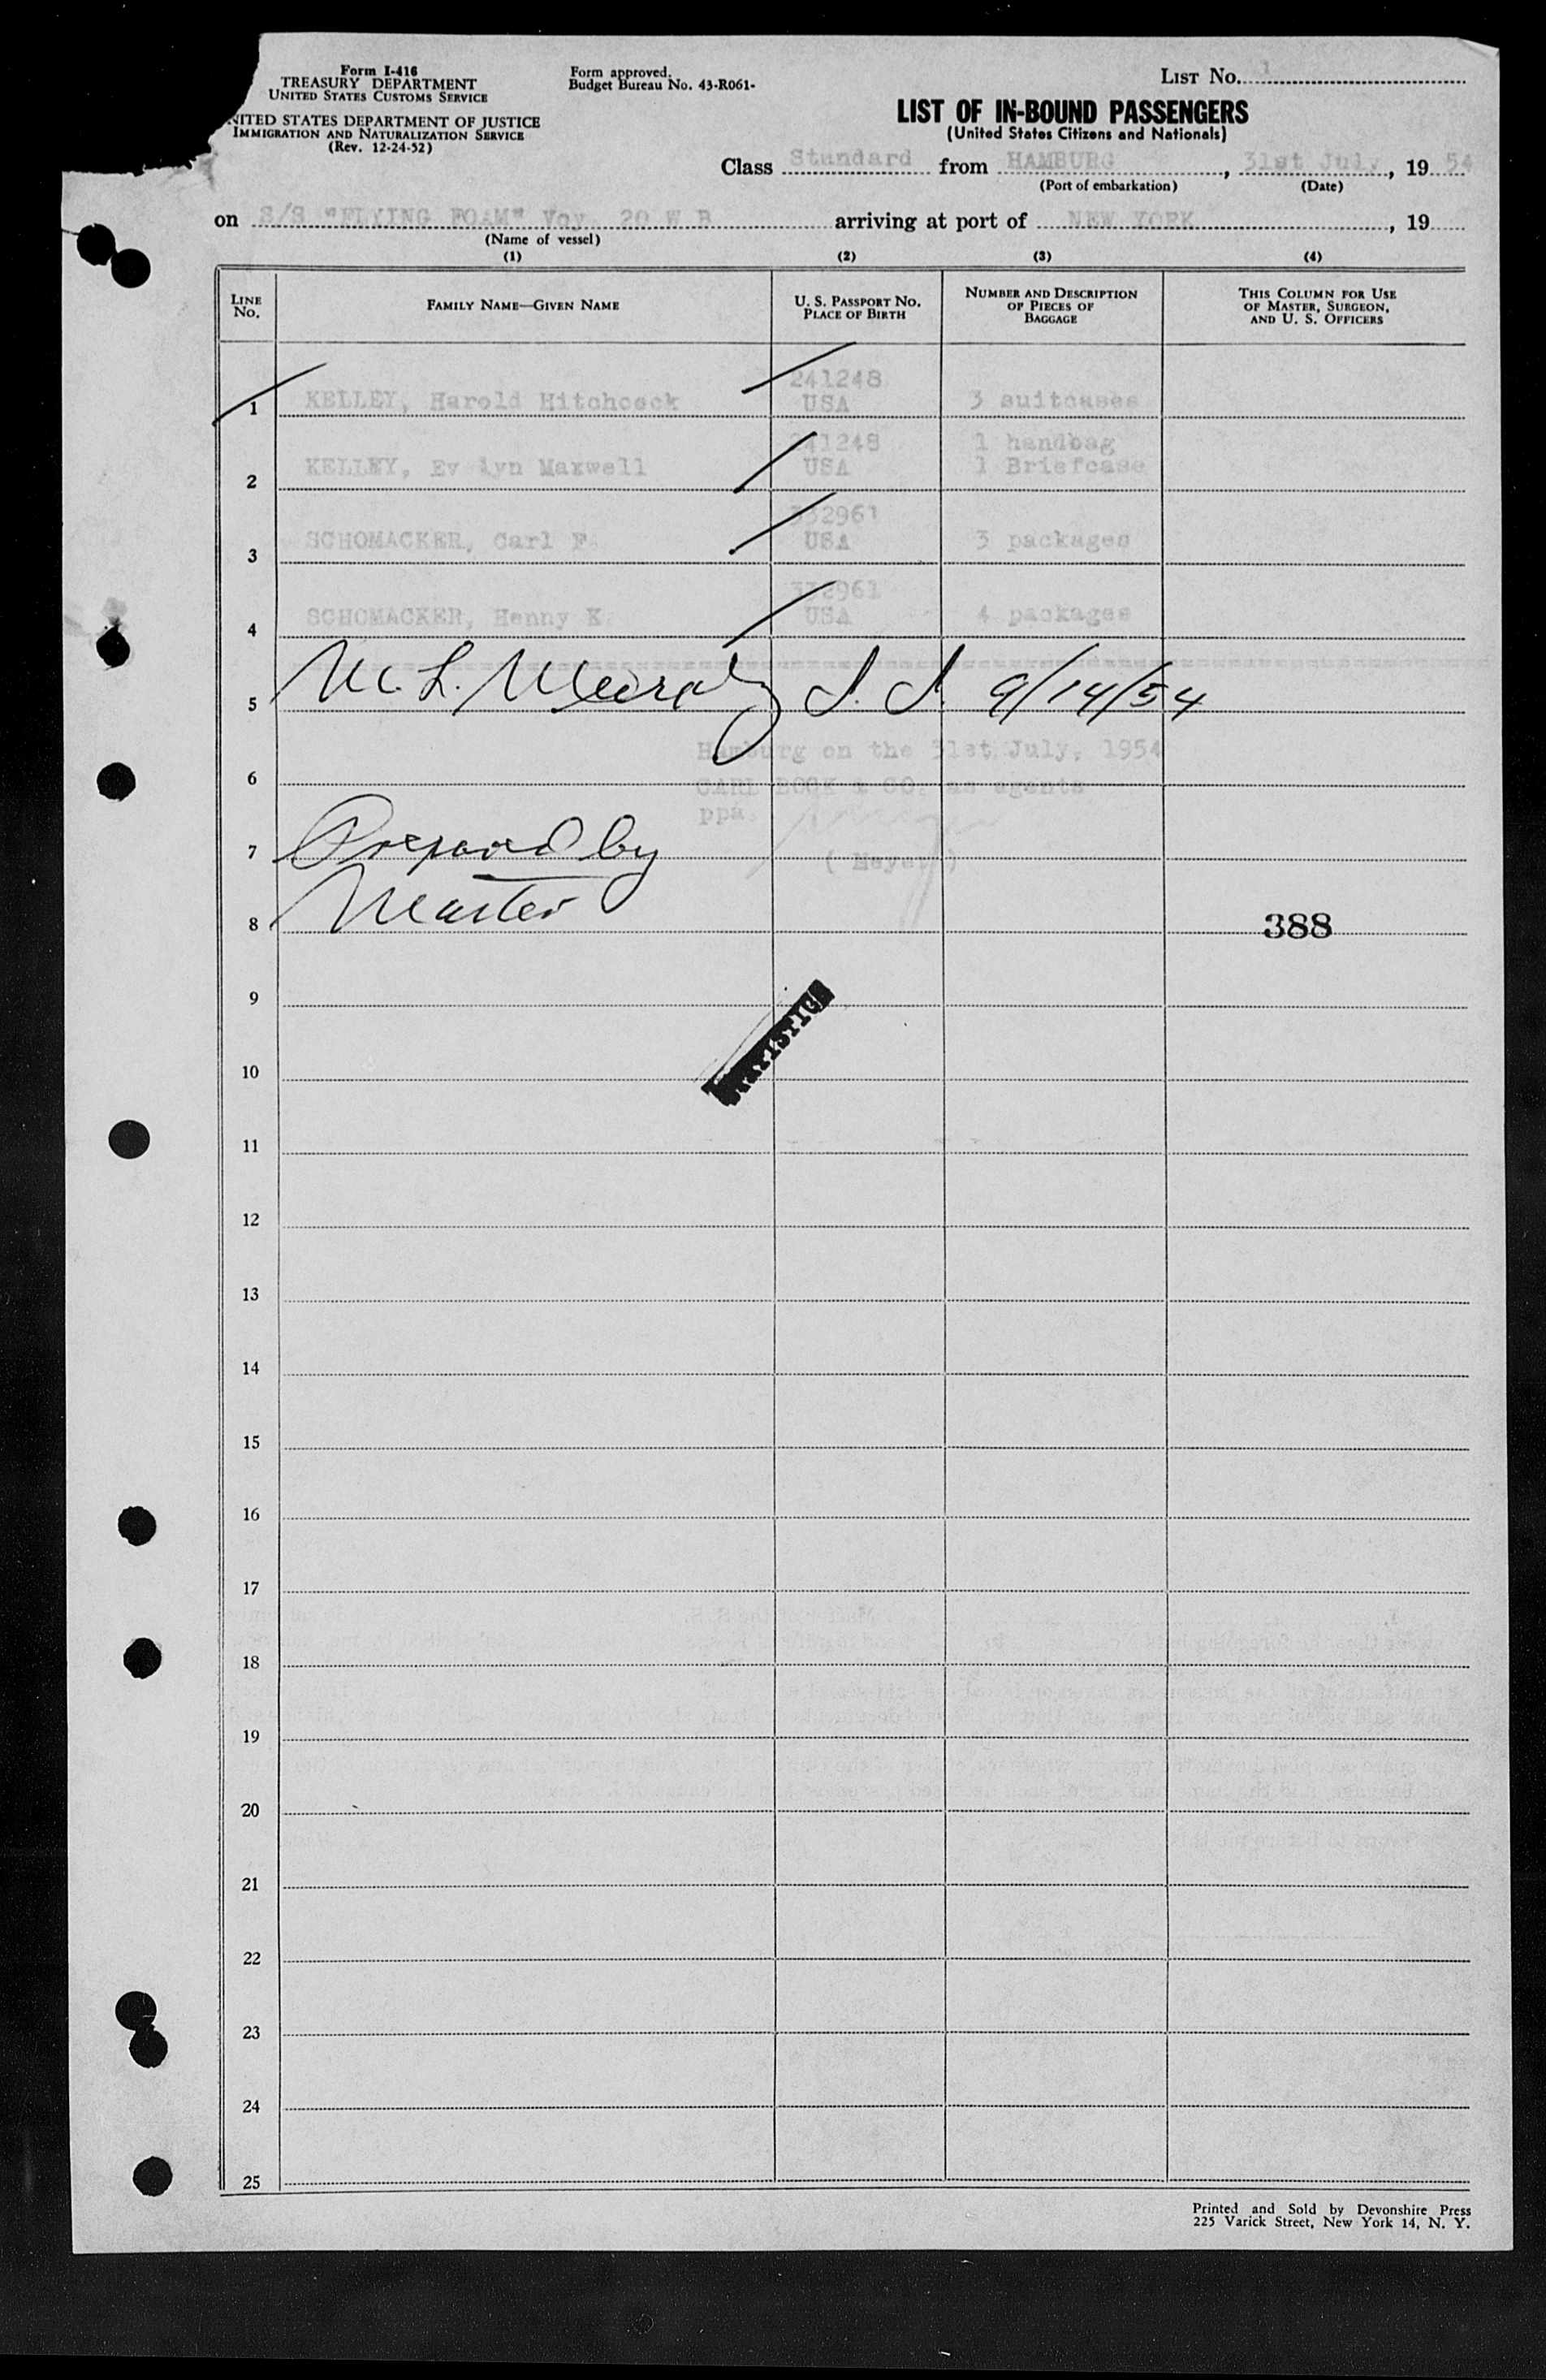 Form I-416
TREASURY DEPARTMENT
UNITED STATES CUSTOMS SERVICE
NITED STATES DEPARTMENT OF JUSTICE
IMMIGRATION AND NATURALIZATION SERVICE
(Rev. 12-24-52)
Form approved.
Budget Bureau No. 43-R061-
LIST NO. 1
LIST OF IN-BOUND PASSENGERS
(United States Citizens and Nationals)
Class Standard from HAMBURG, 31st July, 19 54
(Port of embarkation) (Date)
on S/S "FLYING FOAM" Voy. 20 W B arriving at port of NEW YORK, 19
(Name of vessel)
(1) (2) (3) (4)
LINE NO. FAMILY NAME—GIVEN NAME U. S. PASSPORT NO. PLACE OF BIRTH NUMBER AND DESCRIPTION OF PIECES OF BAGGAGE THIS COLUMN FOR USE OF MASTER, SURGEON, AND U. S. OFFICERS
241248
1 KELLEY, Harold Hitchcock USA 3 suitcases
241248 1 handbag
2 KELLEY, Evelyn Maxwell USA 1 Briefcase
332961
3 SCHOMACKER, Carl F. USA 3 packages
332961
4 SCHOMACKER, Henny K. USA 4 packages
5 M. L. I. I. 9/14/54
Hamburg on the 31st July, 1954
6 CARL BOCK & CO. as agents
ppa.
7 Prepared by
( Meyer )
8 Master 388
9
STATISTICS
10
11
12
13
14
15
16
17
18
19
20
21
22
23
24
25
Printed and Sold by Devonshire Press
225 Varick Street, New York 14, N. Y.